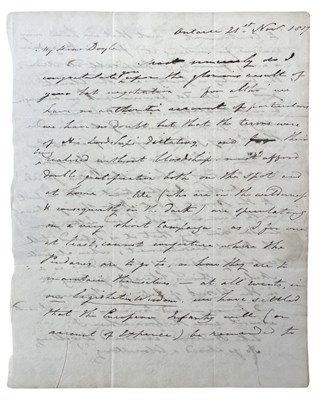 21st Nov. 1817
My Dear Doyle
most sincerely do I
congratulate you upon the glorious result of
your last negotiation - for altho we
have no authentic account of particulars
we have no doubt but that the terms were
of His Lordship's dictating, and
received without bloodshed wd afford
double gratification both on the spot and
at home - We (who are in the
& consequently in the dark) are speculating
on a very short Campaign as I for one
at least, cannot conjecture where the
are to go to, or how they are to
maintain themselves - at all events, in
our legislative Wisdom we have settled
that the European Infantry will (on
account of Expence) be remanded to